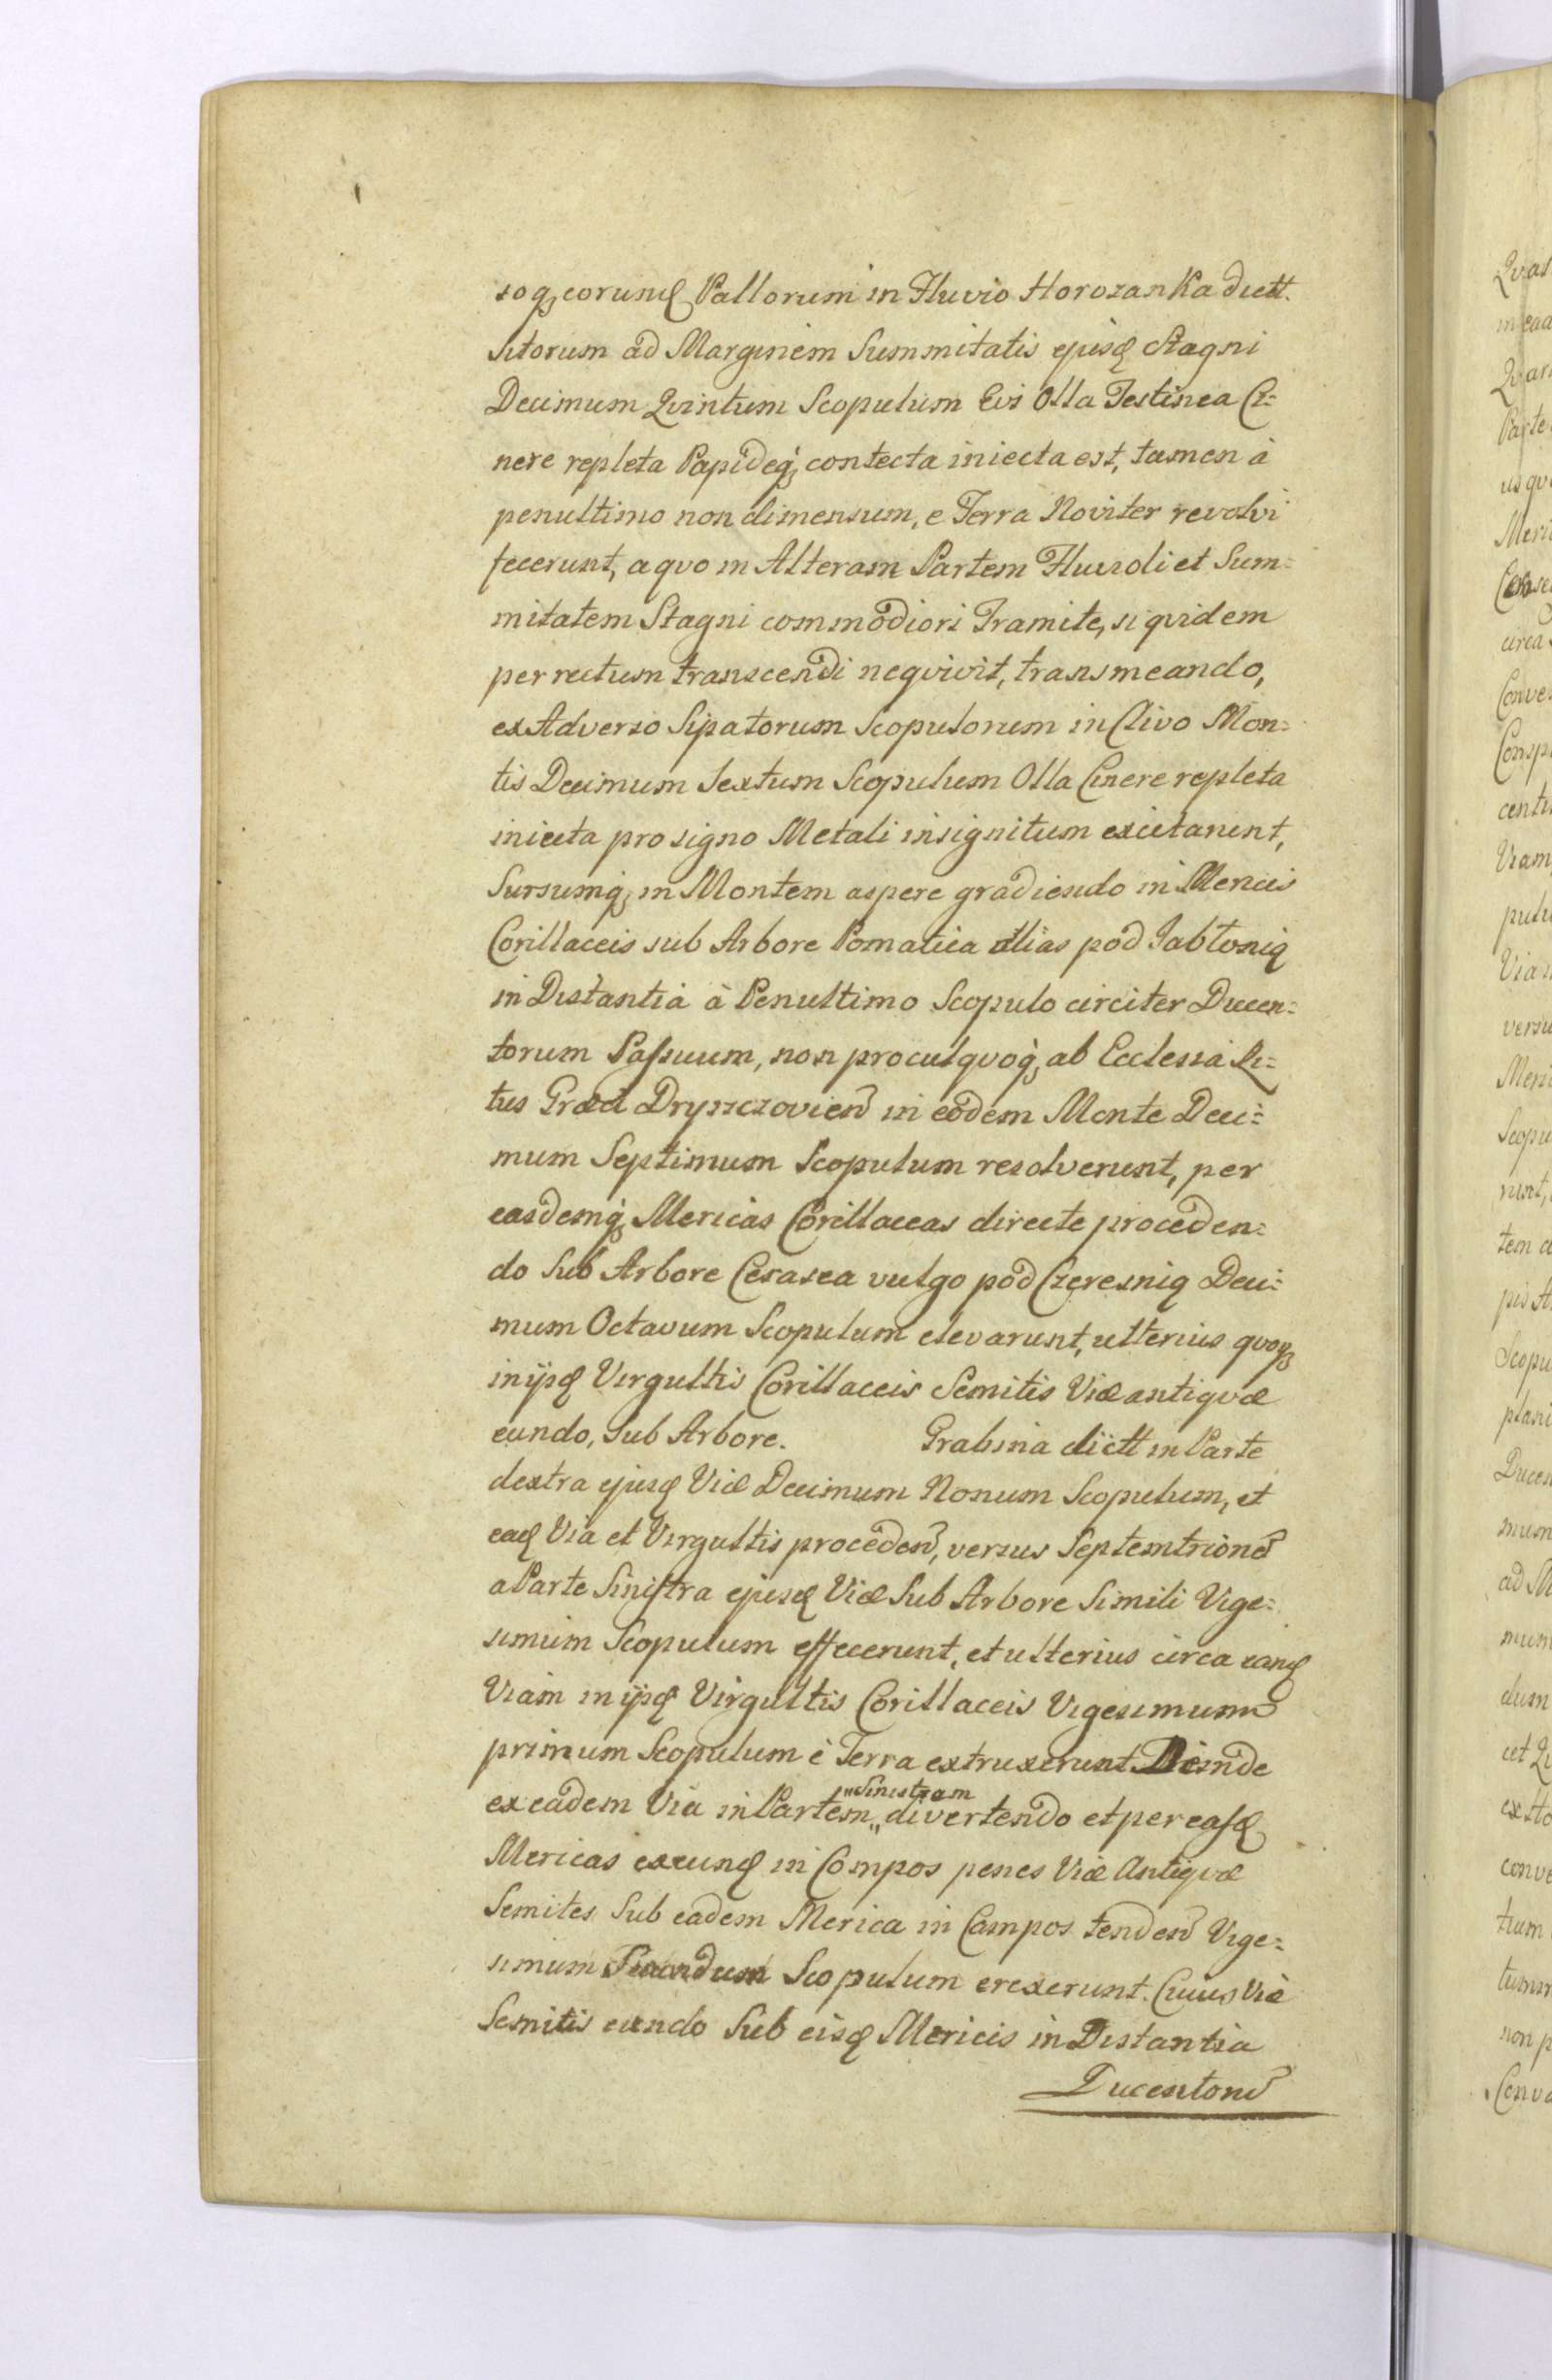 soq₃ eorund Pallorum in Fluvio Horozanka dictt.
Sitorum ad Marginem Summitatis ejusd Stagni
Decimum Qvintum Scopulum Cui Olla Testinea Ci=
nere repleta Papideq₃ contecta iniecta est, tamen à
penultimo non dimensum, e Terra Noviter revolvi
fecerunt, a quo in Alteram Partem Fluvioli et Sum=
mitatem Stagni commodiori Tramite, si qvidem
per rectum transcendi neqvivit, transmeando,
ex Adverso Sipatorum Scopulorum in Clivo Mon=
tis Decimum Sextum Scopulum Olla Cinere repleta
iniecta pro signo Metali insignitum excitarunt,
Sursumq₃ in Montem aspere gradiendo in Mericis
Corillaceis sub Arbore Pomatica alias pod Jabłonią
in Distantia à Penultimo Scopulo circiter Ducen=
torum Passuum, non procul qvoq₃ ab Ecclesia Ri=
tus Græci Dryszczovien in eodem Monte Deci=
mum Septimum Scopulum resolverunt, per
easdemq₃ Mericas Corillaceas directe proceden=
do Sub Arbore Cerasea vulgo pod Czeresnią Deci=
mum Octavum Scopulum elevarunt, ulterius qvoq₃
in ijsd Virgultis Corillaceis Semitis Viæ antiqvæ
eundo, Sub Arbore. Grabina dictt in Parte
dextra ejusd Viæ Decimum Nonum Scopulum, et
ead Via et Virgultis proceden, versus Septemtrionem
a Parte Sinistra ejusd Viæ Sub Arbore Simili Vige=
simum Scopulum effecerunt, et ulterius circa eand
Viam in ijsd Virgultis Corillaceis Vigesimum
primum Scopulum è Terra extruxerunt. Deinde
ex eadem Via in Partem „Sinistram„ divertendo et per easd
Mericas exeund in Compos penes Viæ Antiqvæ
Semites Sub eadem Merica in Campos tenden Vige=
simum Secundum Scopulum erexerunt. Cuius Viæ
Semitis eundo Sub eisd Mericis in Distantia
Ducenton